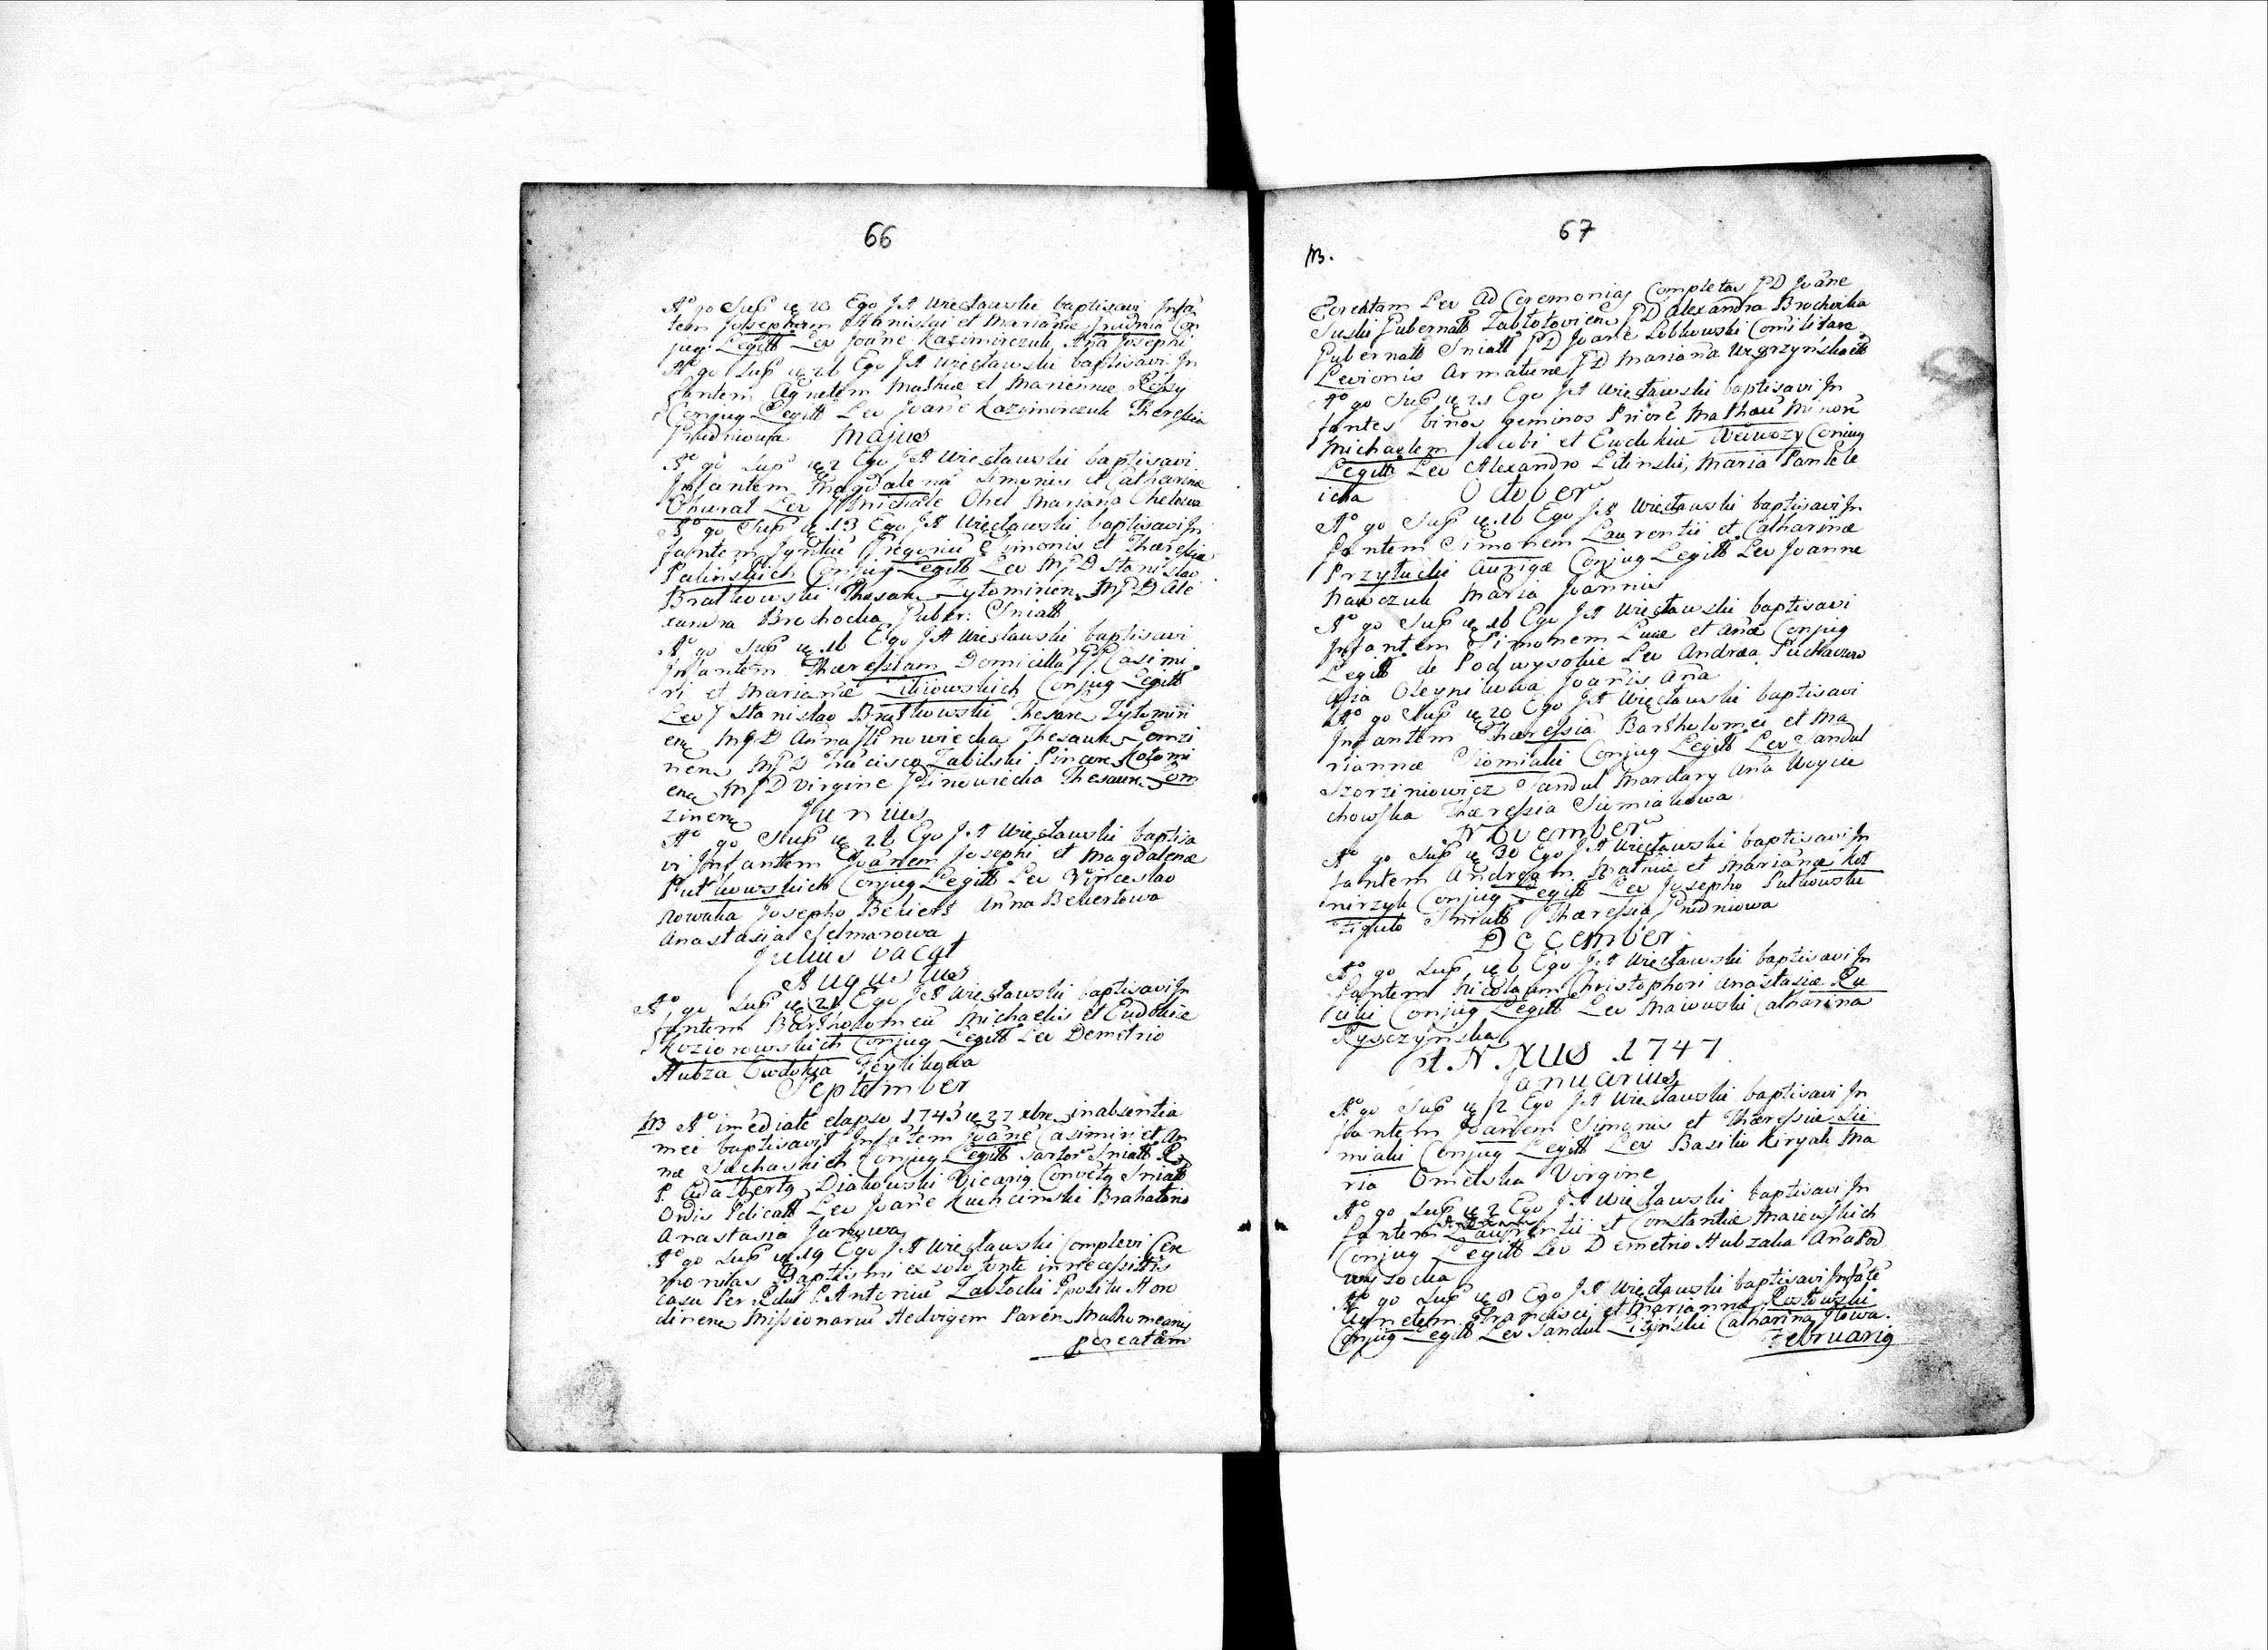 66
Aº go Sup ię 20 Ego J A Więcławski baptisavi Infā
tem Josephum Stanislai et Mariañæ Prudniu Con
jug Legitt Lev Joañe Kazimirczuk, Aña Josephi
Aº go Sup ię 26 Ego J A Więcławski baptisavi In
fantem Agnetem Mathiæ et Mariennæ
Conjug Legitt Lev Joañe Kazimirczuk Theressia
Prudniowa Majus
Aº go Sup ię 2 Ego J A Więcławski baptisavi
Infantem Magdalenā Simonis et Catharinæ
Lev Michaele Mariana
Aº go Sup ię 13 Ego J A Więcławski baptisavi In
fantem Gregoriū Simonis et Thæressiæ
Palińskich Conjug Legitt Lev M J D Stanislao
Bratkowski Thesau Zytomirien M J D Ale
xandra Brochocka Guber: Sniatt
Aº go Sup ię 16 Ego J A Więcławski baptisavi
Infantem Thæressiam Domicellā Casimi
ri et Marianæ Conjug Legitt
Lev J Stanislao Bratkowski Thesau Zytomiri
en M J D Anna Thesauk Lomzi
nen M J D Frācisco Zabilski Pincer Kołomi
en M J D Virgine Thesaur Lom
zinen Junius
Aº go Sup ię 26 Ego J A Więcławski baptisa
vi Infantem Joanem Josephi et Magdalenæ
Putkowskich Conjug Legitt Lev Vinceslao
Nowaka Josepho Bekiert Anna Bekertowa
Anastasia Selmarowa
Julius vacat
Augustus
Aº go Sup ię 21 Ego J A Więcławski baptisavi In
fantem Bartholomeū Michaelis et Eudokiæ
Koziorowskich Conjug Legitt Lev Demetrio
Hubza Ewdokja
September
NB Aº imēdiate elapso 1745 ię 27 xbre in absentia
mei baptisavit Infātem Joañe Casimiri et An
næ Suchaskich Conjug Legitt Sartor Sniatt R
P. Adalbertg Diakowski Vicarig Convētg Sniatt
Ordis Pdicatt Lev Joañe Kuchcinski Brahatorio
Anastasia Janowa
Aº go Sup ię 19 Ego J A Więcławski Complevi Cere
monias Baptismi ex solo fonte in necessitis
casu Per Rdū P. Antoniū Zabłocki Ppositū Horo
dinen Missionariū Hedvigem Paren Mathomeany
pcreatam
67
NB.
Pcreatam Lev Ad Ceremonias Completas P D Joañe
Suski Gubernatt Zabłotovien P D Alexandra Brochocka
Gubernatt Sniatt P D Joañe Lobkowski Comilitare
Levionis Armaturæ P D Mariaña Węgrzyńska
Aº go Sup ię 21 Ego J A Więcławski baptisavi In
fantes binos geminos Priorē Mathæū Minorē
Michaelem Jacobi et Eudokiæ Conjug
Legitt Lev Alexandro Litinski, Maria Pantele
icka October
Aº go Sup ię 16 Ego J A Więcławski baptisavi In
fantem Simonem Laurentii et Catharinæ
Przyłucki Aurigæ Conjug Legitt Lev Joanne
Nawczuk Maria Joannis
Aº go Sup ię 16 Ego J A Więcławski baptisavi
Infantem Simonem Lucæ et Anæ Conjug
Legitt de Podwysokie Lev Andrea
Oleynikowa Joañis Aña
Aº go Sup ię 20 Ego J A Więcławski baptisavi
Infantem Thæressiā Bartholomei et Ma
riannæ Siomiaki Conjug Legitt Lev Sandul
Szorziniowicz Sandul Mardary Aña Woycie
chowska Thæressia Siemiakowa
November
Aº go Sup ię 30 Ego J A Więcławski baptisavi In
fantem Andream Mathiæ et Marianæ
Conjug Legitt Lev Josepho Putkowski
Figulo Sniatt Thæressia Prudniowa
December
Aº go Sup ię 6 Ego J A Więcławski baptisavi In
fantem Nicolaum Christophori Anastasiæ Ru
Conjug Legitt Lev Maiowski Catharina
Ryszczyńska
ANNUS 1747
Januarius
Aº go Sup ię 12 Ego J A Więcławski baptisavi In
fantem Joanem Simonis et Thæressiæ Sie
miaki Conjug Legitt Lev Basilio Kiryak Ma
ria Omelska Virgine
Aº go Sup ię 2 Ego J A Więcławski baptisavi In
fantem Laurentii et Constantiæ Maiewskich
Conjug Legitt Lev Demetrio Hubzala Aña Pod
wysocka
Aº go Sup ię 8 Ego J A Więcławski baptisavi Infātē
Agnetem Francisci et Mariannæ Rostowski
Conjug Legitt Lev Sandul Litiński Catharina
Februarig